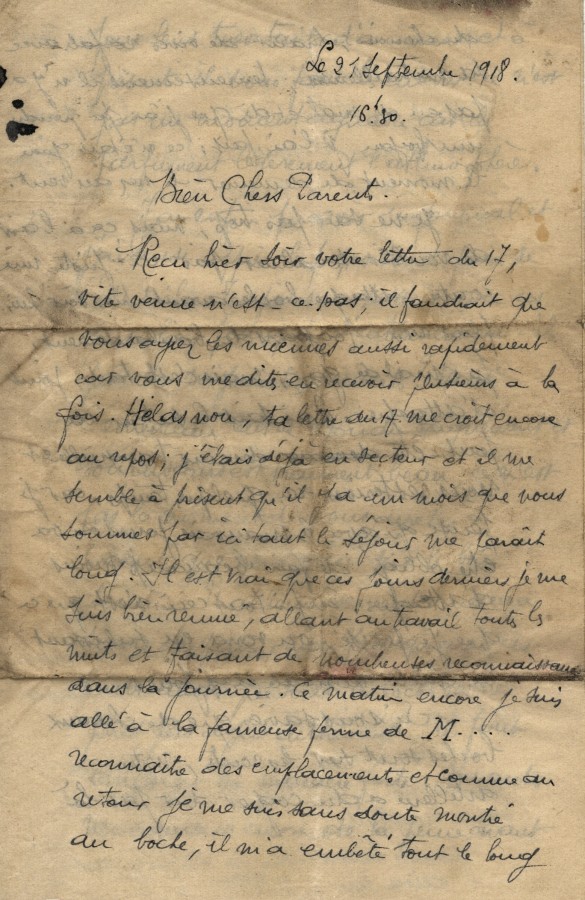 Le 21 Septembre 1918.
16h30.
Bien Chers Parents.
Recu hier soir votre lettre du 17,
vite venue n'est-ce-pas; il faudrait que
vous ayez les miennes aussi rapidement
car vous me dites en recevoir plusieurs à la
fois. Hélas non, ta lettre du 17 me croit encore
au repos; j'étais déjà en secteur et il me
semble à présent qu'il y a un mois que nous
sommes par ici tant le séjour me parait
long. Il est vrai que ces jours derniers je me
suis bien remué, allant au travail toutes les
nuits et faisant de nombreuses reconnaissances
dans la journée. Ce matin encore je suis
allé à la fameuse ferme de M....
reconnaitre des emplacements et comme au
retour je me suis sans doute montré
au boche, il m'a embêté tout le long